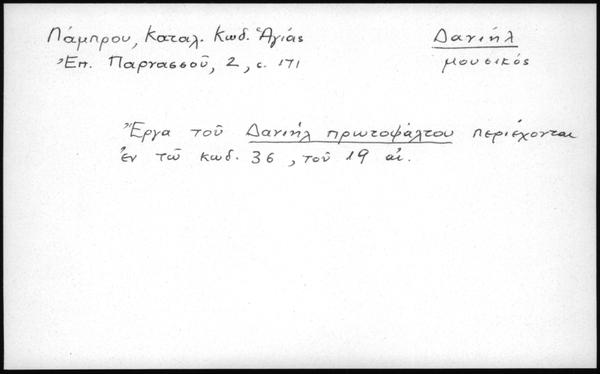 Λάμπρου, Καταλ. Κωδ. Ἁγίας
Δανιήλ
Ἐπ. Παρνασσοῦ, 2, σ. 171
μουσικός
Ἔργα τοῦ Δανιήλ πρωτοψάλτου περιέχονται
ἐν τῶ κωδ. 36, τοῦ 19 αἰ.